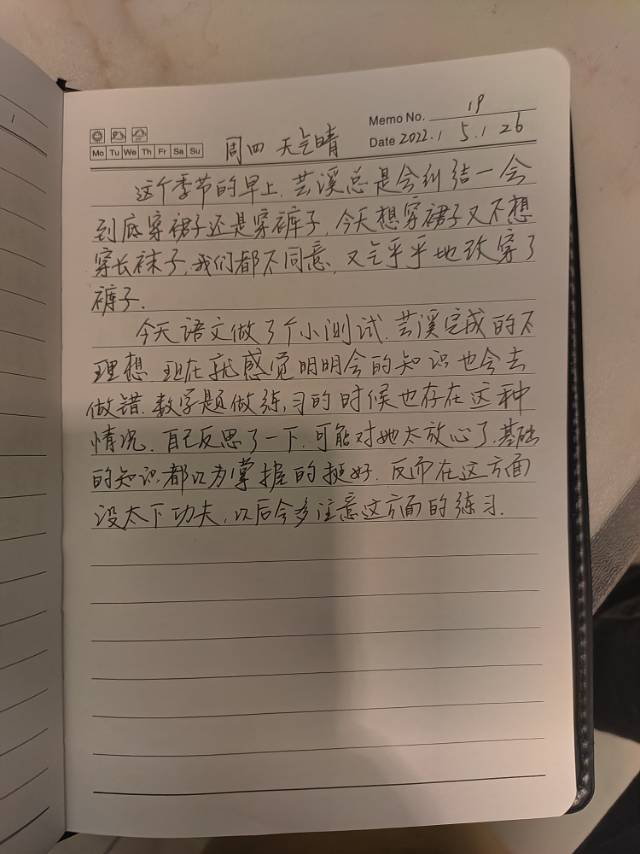 1
Memo No. 19
Mo Tu We Th Fr Sa Su
周四 天气晴
Date 2022.1 5.1 26
这个季节的早上.芸溪总是会纠结一会
到底穿裙子还是穿裤子.今天想穿裙子又不想
穿长袜子.我们都不同意.又气乎乎地改穿了
裤子.
今天语文做了个小测试.芸溪完成的不
理想.现在就感觉明明会的知识也会去
做错.数学题做练习的时候也存在这种
情况.自己反思了一下.可能对她太放心了.基础
的知识都以为掌握的挺好.反而在这方面
没太下功夫.以后会多注意这方面的练习.